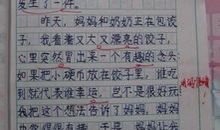 发生了一件。
昨天，妈妈和奶奶正在包饺
子，我看着又大又漂亮的饺子，
心里突然冒出来一个有趣的念头
如果把小硬币放在饺子里，谁吃
到就代表谁幸运。岂不是很好玩
我把这个想法告诉了妈妈，妈妈